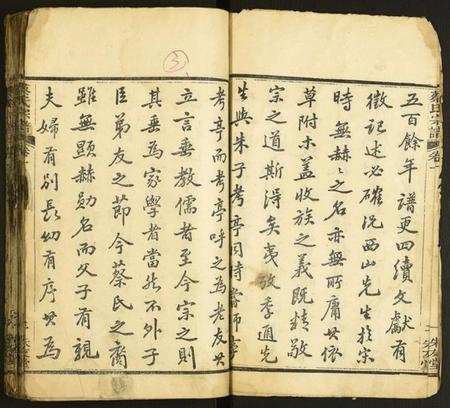 五百餘年譜更四續文獻有
徵記述必確況西山先生於宋
時無赫之名亦無所庸其依
草附木蓋收族之義既精敬
宗之道斯得矣夷攷季通先
生與朱子考亭同時嘗師事
考亭而考亭呼之為老友其
立言垂教儒者至今宗之則
其垂為家學者當然不外子
臣弟友之節今蔡氏之裔
雖無顯赫勛名而父子有親
夫婦有別長幼有序其為
蔡氏宗譜
卷一